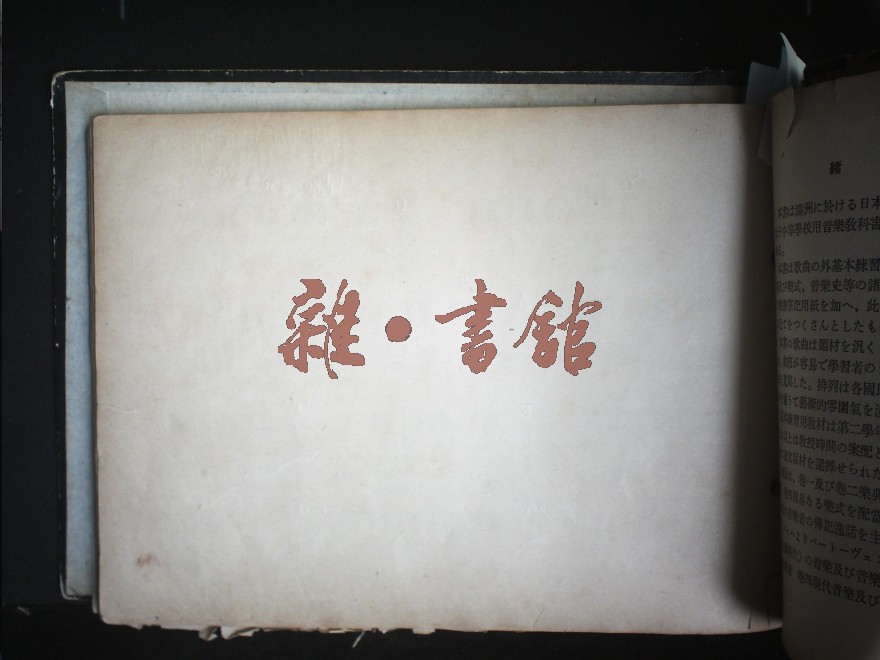 雜•書館
緒
本書は滿洲に於ける日本
中等學校用音樂敎科書
本書は歌曲の外基本練習
樂式，音樂史等の諸
用紙を加へ，此
てをつくさんとしたも
の歌曲は題材を汎く
が容易で學習者の
した。排列は各國民
て藝術的雰圍氣を
練習用敎材は第二學年
は敎授時間の案配と
敎材を選擇せられた
は，卷一及び卷二樂典
なる樂式を配當
の傳記逸話を主
よりベートーヴェ
の音樂及び音樂
卷四現代音樂及び